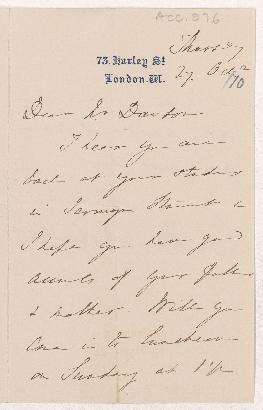 ACC. 376
Thursday
73. Harley St
London. W.
27 Oct
/70
Dear Mr Dawson
I hear you are
back at your studio
in Street &
I hope you have good
accounts of your father
& mother. Will you
come in to luncheon
on Sunday at 1